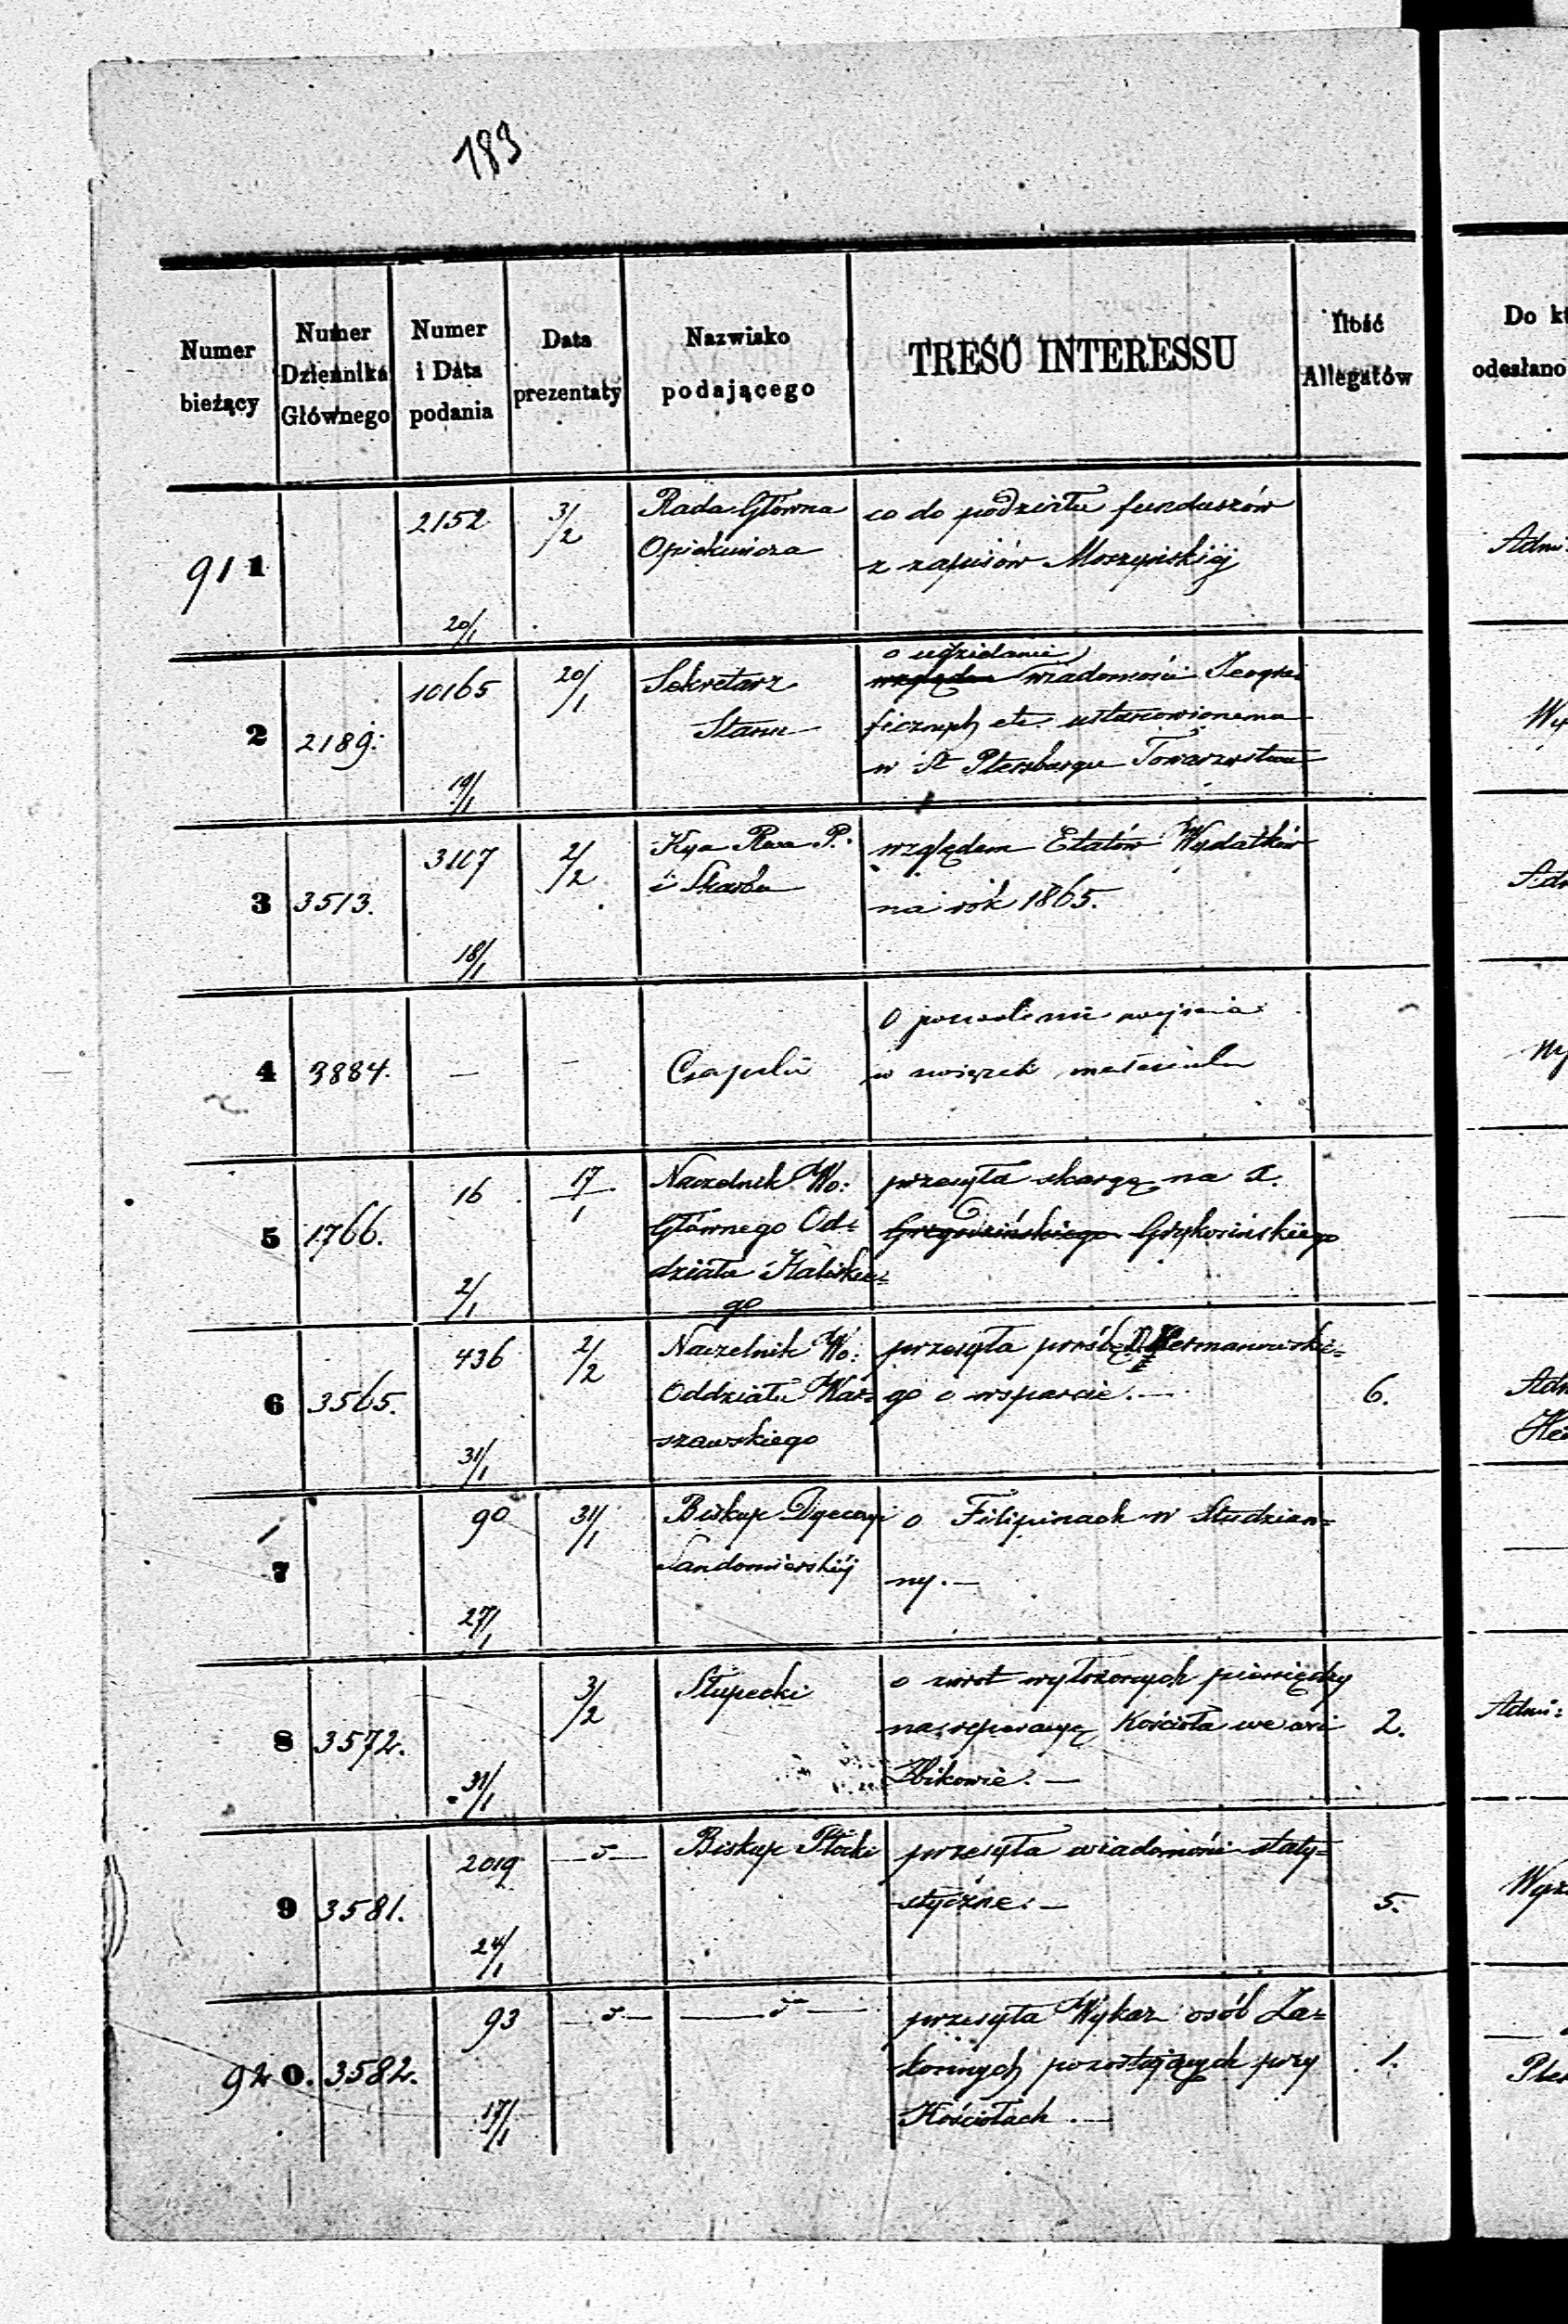 183
Numer bieżący
Numer Dziennika Głównego
Numer i Data podania
Data prezentaty
Nazwisko podającego
TREŚĆ INTERESSU
Ilość Allegatów
Do
odesłano
911 2152 20/1 3/2
Rada Główna
Opiekuńcza
co do podziału funduszów
z zapisów Moszyńskiéj
2 2189. 10165 19/1 20/1
Sekretarz
Stanu
o udzielanie
względem wiadomości Jeogra
ficznych etc. ustanowionemu
w St Petersburgu Towarzystwu
3 3513. 3117 18/1 2/2
Kya Rwa P.
i Skarbu
względem Etatów Wydatków
na rok 1865.
4 3884. — —
O pozwolenie wejścia
w związek
5 1766. 16 2/1 17/1
Naczelnik Wo:
Głównego Od=
działu Kaliskie=
go
przesyła skargę na X.
6 3565. 436 31/1 2/2
Naczelnik Wo:
Oddziału War=
szawskiego
przesyła prośbę Hermanowskie=
go o wsparcie. —
6.
7 90 27/1 31/1
Biskup Dyecezyi
Sandomierskiéj
o Filipinach w Studzian=
ny. —
8 3572. 31/1 3/2
Słupecki
o zwrot wyłożonych pieniędzy
na reperacyę Kościoła we wsi
Żbikowie. —
2.
Adm:
9 3581. 2019 24/1
Biskup Płocki
przesyła wiadomości staty=
styczne. —
5.
920. 3582. 93 17/1
przesyła Wykaz osób Za=
konnych pozostających przy
Kościołach. —
1.